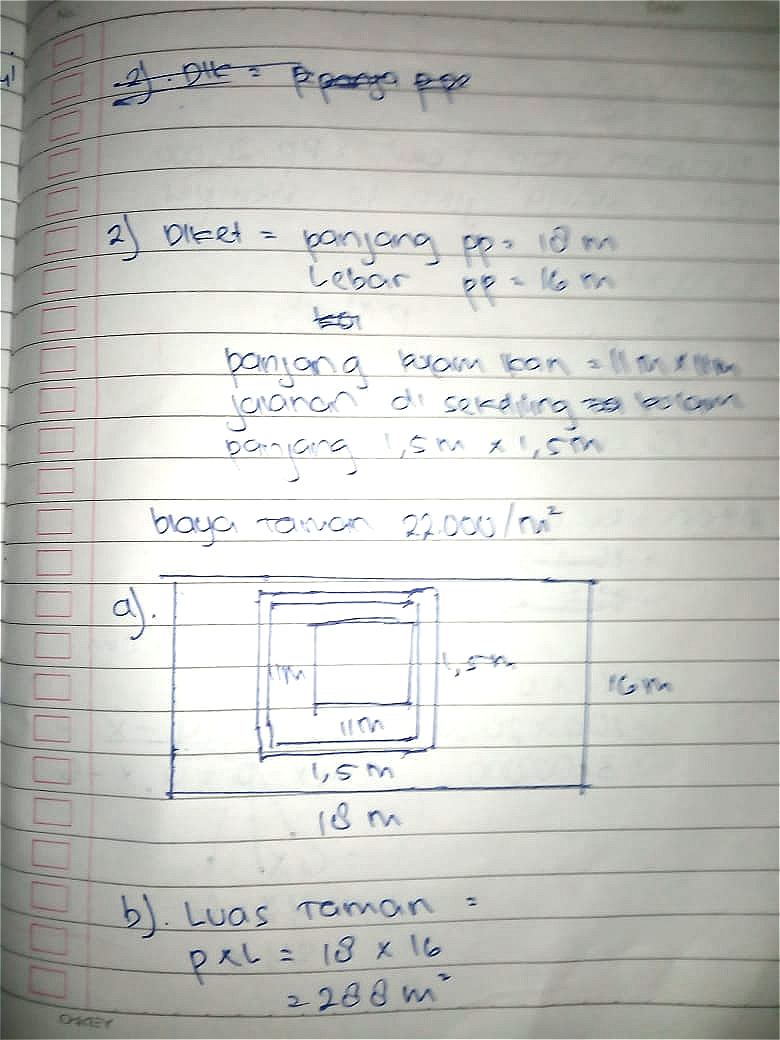 2). Dik =
2) Diket = panjang pp = 18 m
Lebar pp = 16 m
panjang kolam ikan = 11 m x 11 m
jalanan di sekeliling kolam
panjang 1,5 m x 1,5 m
biaya taman 22.000/m²
a).
11m
1,5m
16 m
11 m
1,5 m
18 m
b). Luas Taman =
p x L = 18 x 16
= 288 m²
OKEY